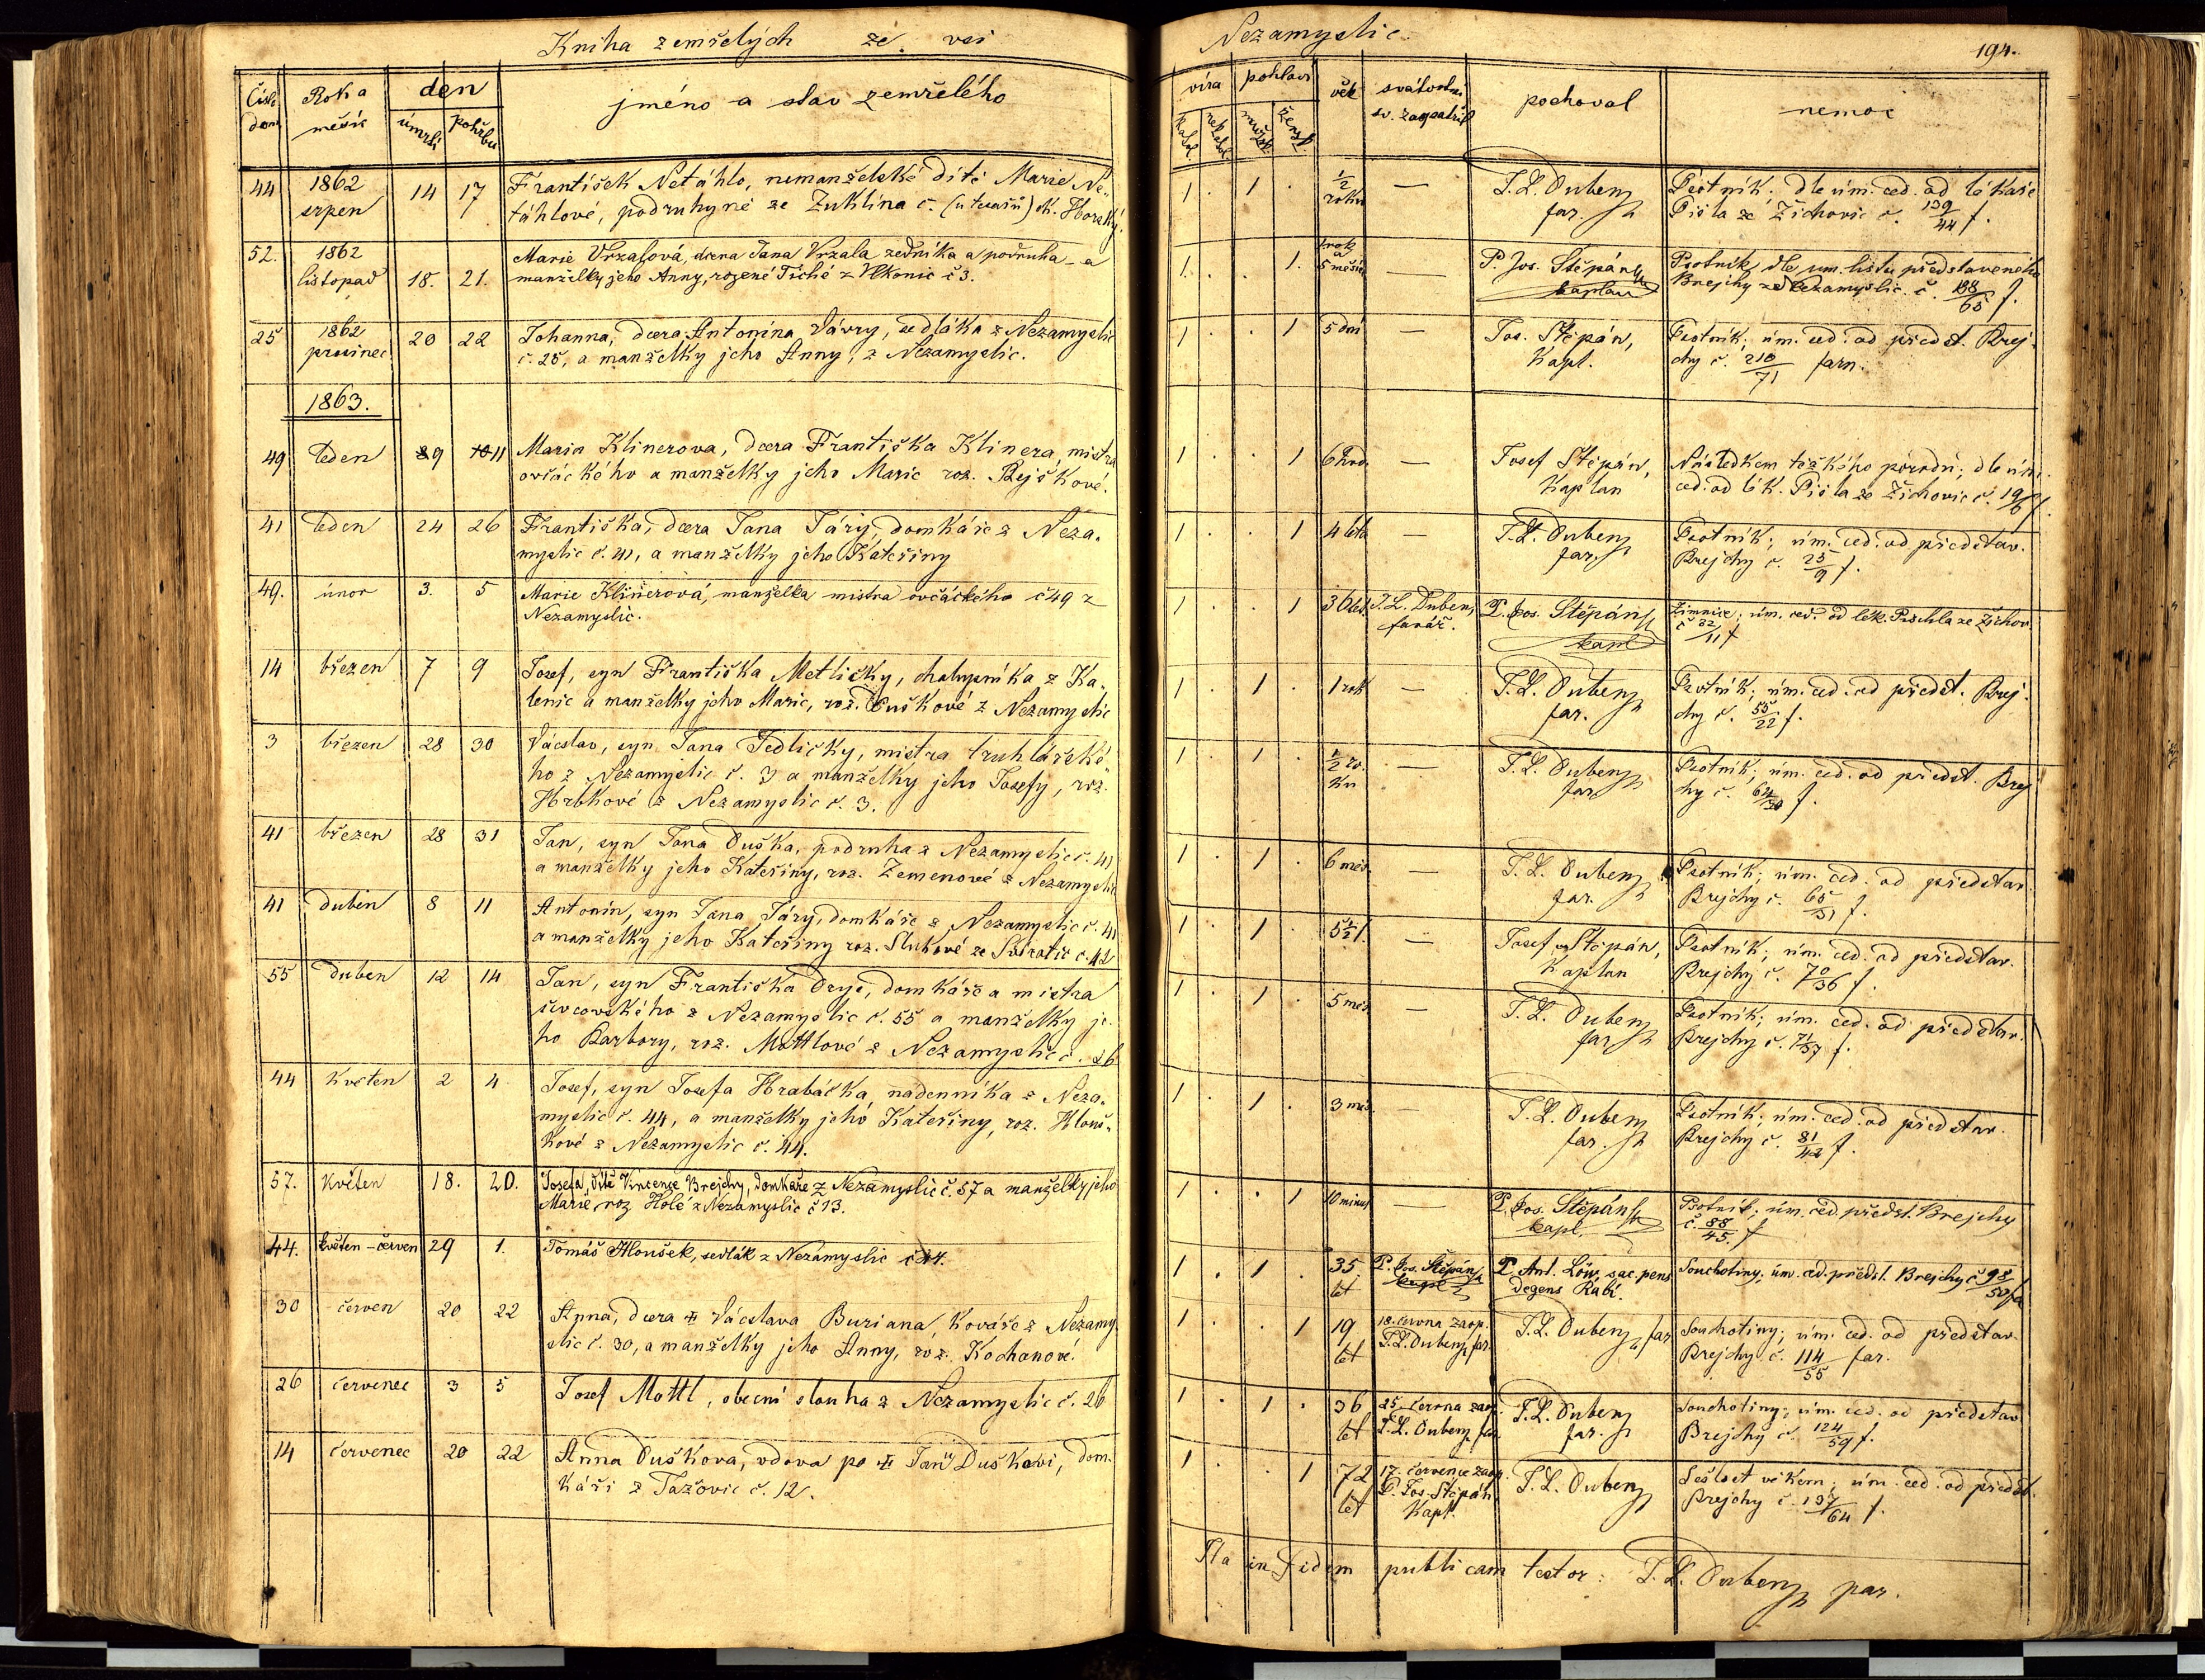 Kniha zemřelých ze vsi
Nezamyslic.
194.
Číslo domu
Rok a měsíc
den
úmrtí
pohřbu
jméno a stav zemřelého
víra
kathol.
nekathol.
pohlaví
mužsk.
žensk.
věk
sv. zaopatřil
pochoval
nemoc
44 1862 srpen 14 17 František Netáhlo, nemanželské dítě Marie Ne-
táhlové, podruhyně ze Zuklína č.
1 . 1 . ½ roku — T. L. Dubenz far. Psotník; dle úm. ced. od lékaře
Pišla ze Žichovic č. 139/44 f.
52. 1862 listopad 18. 21. Marie Vrzalová, dcera Jana Vrzala zedníka a podruha a
manželky jeho Anny, rozené Tiché z Vlkonic č 3.
1 . . 1. 1 rok a 5 měsíců — P. Jos. Štěpán kaplan Psotník, dle úm. listu představeného
Brejchy z Nezamyslic. č. 188/65 f.
25 1862 prosinec 20 22 Johanna, dcera Antonína Vávry, sedláka z Nezamyslic
č. 25, a manželky jeho Anny, z Nezamyslic.
1 . . 1 5 dní — Jos. Štěpán, Kapl. Psotník; úm. ced. od předst. Brej-
chy č. 210/71 farn.
1863.
49 leden 9 11 Maria Klinerova, dcera Františka Klinera, mistra
ovčáckého a manželky jeho Marie roz. Rejškové.
1 . . 1 6 hod. — Josef Štěpán, Kaplan Následkem těžkého porodu; dle úm.
ced. od lék. Pišla ze Žichovic č. 19/6 f.
41 leden 24 26 Františka, dcera Jana Járy, domkáře z Neza-
myslic č. 41, a manželky jeho Kateřiny
1 . . 1 4 léta — T. L. Dubenz far. Psotník; úm. ced. od představ.
Brejchy č. 25/9 f.
49. únor 3. 5 Marie Klinerová, manželka mistra ovčáckého č 49 z
Nezamyslic.
1 . . 1 36 let T. L. Dubenz farář. P. Jos. Štěpán kapl Zimnice; úm. ced. od lék. Pischla ze Žichov.
č 32/11 f
14 březen 7 9 Josef, syn Františka Metličky, chalupníka z Ka-
lenic a manželky jeho Marie, roz. Duškové z Nezamyslic
1 . 1 . 1 rok — T. L. Dubenz far. Psotník; úm. ced. od předst. Brej-
chy č. 55/22 f.
3 březen 28 30 Václav, syn Jana Jedličky, mistra truhlářské-
ho z Nezamyslic č. 3 a manželky jeho Josefy, roz.
Hrbkové z Nezamyslic č. 3.
1 . 1 . ½ ro- ku — T. L. Dubenz far. Psotník; úm. ced. od předst. Brej
hy č. 64/30 f.
41 březen 28 31 Jan, syn Jana Duška, podruha z Nezamyslic č. 41
a manželky jeho Kateřiny, roz. Zemenové z Nezamyslic
1 . 1 . 6 měs. — T. L. Dubenz far. Psotník; úm. ced. od představ.
Brejchy č. 65/31 f.
41 duben 8 11 Antonín, syn Jana Járy, domkáře z Nezamyslic č. 41
a manželky jeho Kateřiny roz. Slukové ze Svíratic č. 42
1 . 1 . 5½ l. — Josef Štěpán, Kaplan Psotník; úm. ced. od představ.
Brejchy č. 70/36 f.
55 duben 12 14 Jan, syn Františka, domkáře a mistra
ševcovského z Nezamyslic č. 55 a manželky je-
ho Barbory, roz. Mottlové z Nezamyslic č. 26
1 . 1 . 5 měs. — T. L. Dubenz far Psotník; úm. ced. od představ.
Brejchy č. 71/37 f.
44 Květen 2 4 Josef, syn Josefa Hrabáčka, nádenníka z Neza-
myslic č. 44, a manželky jeho Kateřiny, roz. Hlouš-
kové z Nezamyslic č. 44.
1 . 1 . 3 měs. — T. L. Dubenz far. Psotník; úm. ced. od představ.
Brejchy č. 81/42 f.
57. Květen 18. 20. Josefa, dítě Vincence Brejchy, domkáře z Nezamyslic č. 57 a manželky jeho
Marie, roz Holé z Nezamyslic č 13.
1 . . 1 10 minut — P. Jos. Štěpán kapl. Psotník; úm. ced. předst. Brejchy
č. 88/45. f
44. květen-červen 29 1. Tomáš Hloušek, sedlák z Nezamyslic č 44.
1 . 1 . 35 let P. Jos. Štěpán kapl P. Ant. Löw, sac. pens. degens Rabí. Souchotiny; úm. ced. předst. Brejchy č 98/50 fa
30 červen 20 22 Anna, dcera Václava Buriana, Kováře z Nezamy-
slic č. 30, a manželky jeho Anny, roz. Kochanové.
1 . . 1 19 let 18. června zaop. T. L. Dubenz far. T. L. Dubenz far. Souchotiny; úm. ced. od představ.
Brejchy č. 114/55 far.
26 červenec 3 5 Josef Mottl, obecní slouha z Nezamyslic č. 26
1 . 1 . 36 let 25. června zaop. T. L. Dubenz far. T. L. Dubenz far. Souchotiny; úm. ced. od představ
Brejchy č. 124/59 f.
14 červenec 20 22 Anna Duškova, vdova po Janu Duškovi, dom-
káři z Tažovic č. 12.
1 . . 1 72 let 17. července zaop. P. Jos. Štěpán Kapl. T. L. Dubenz Sešlost věkem; úm. ced. od předst.
Brejchy č. 137/64 f.
Ita in fidem publicam testor: T. L. Dubenz par.